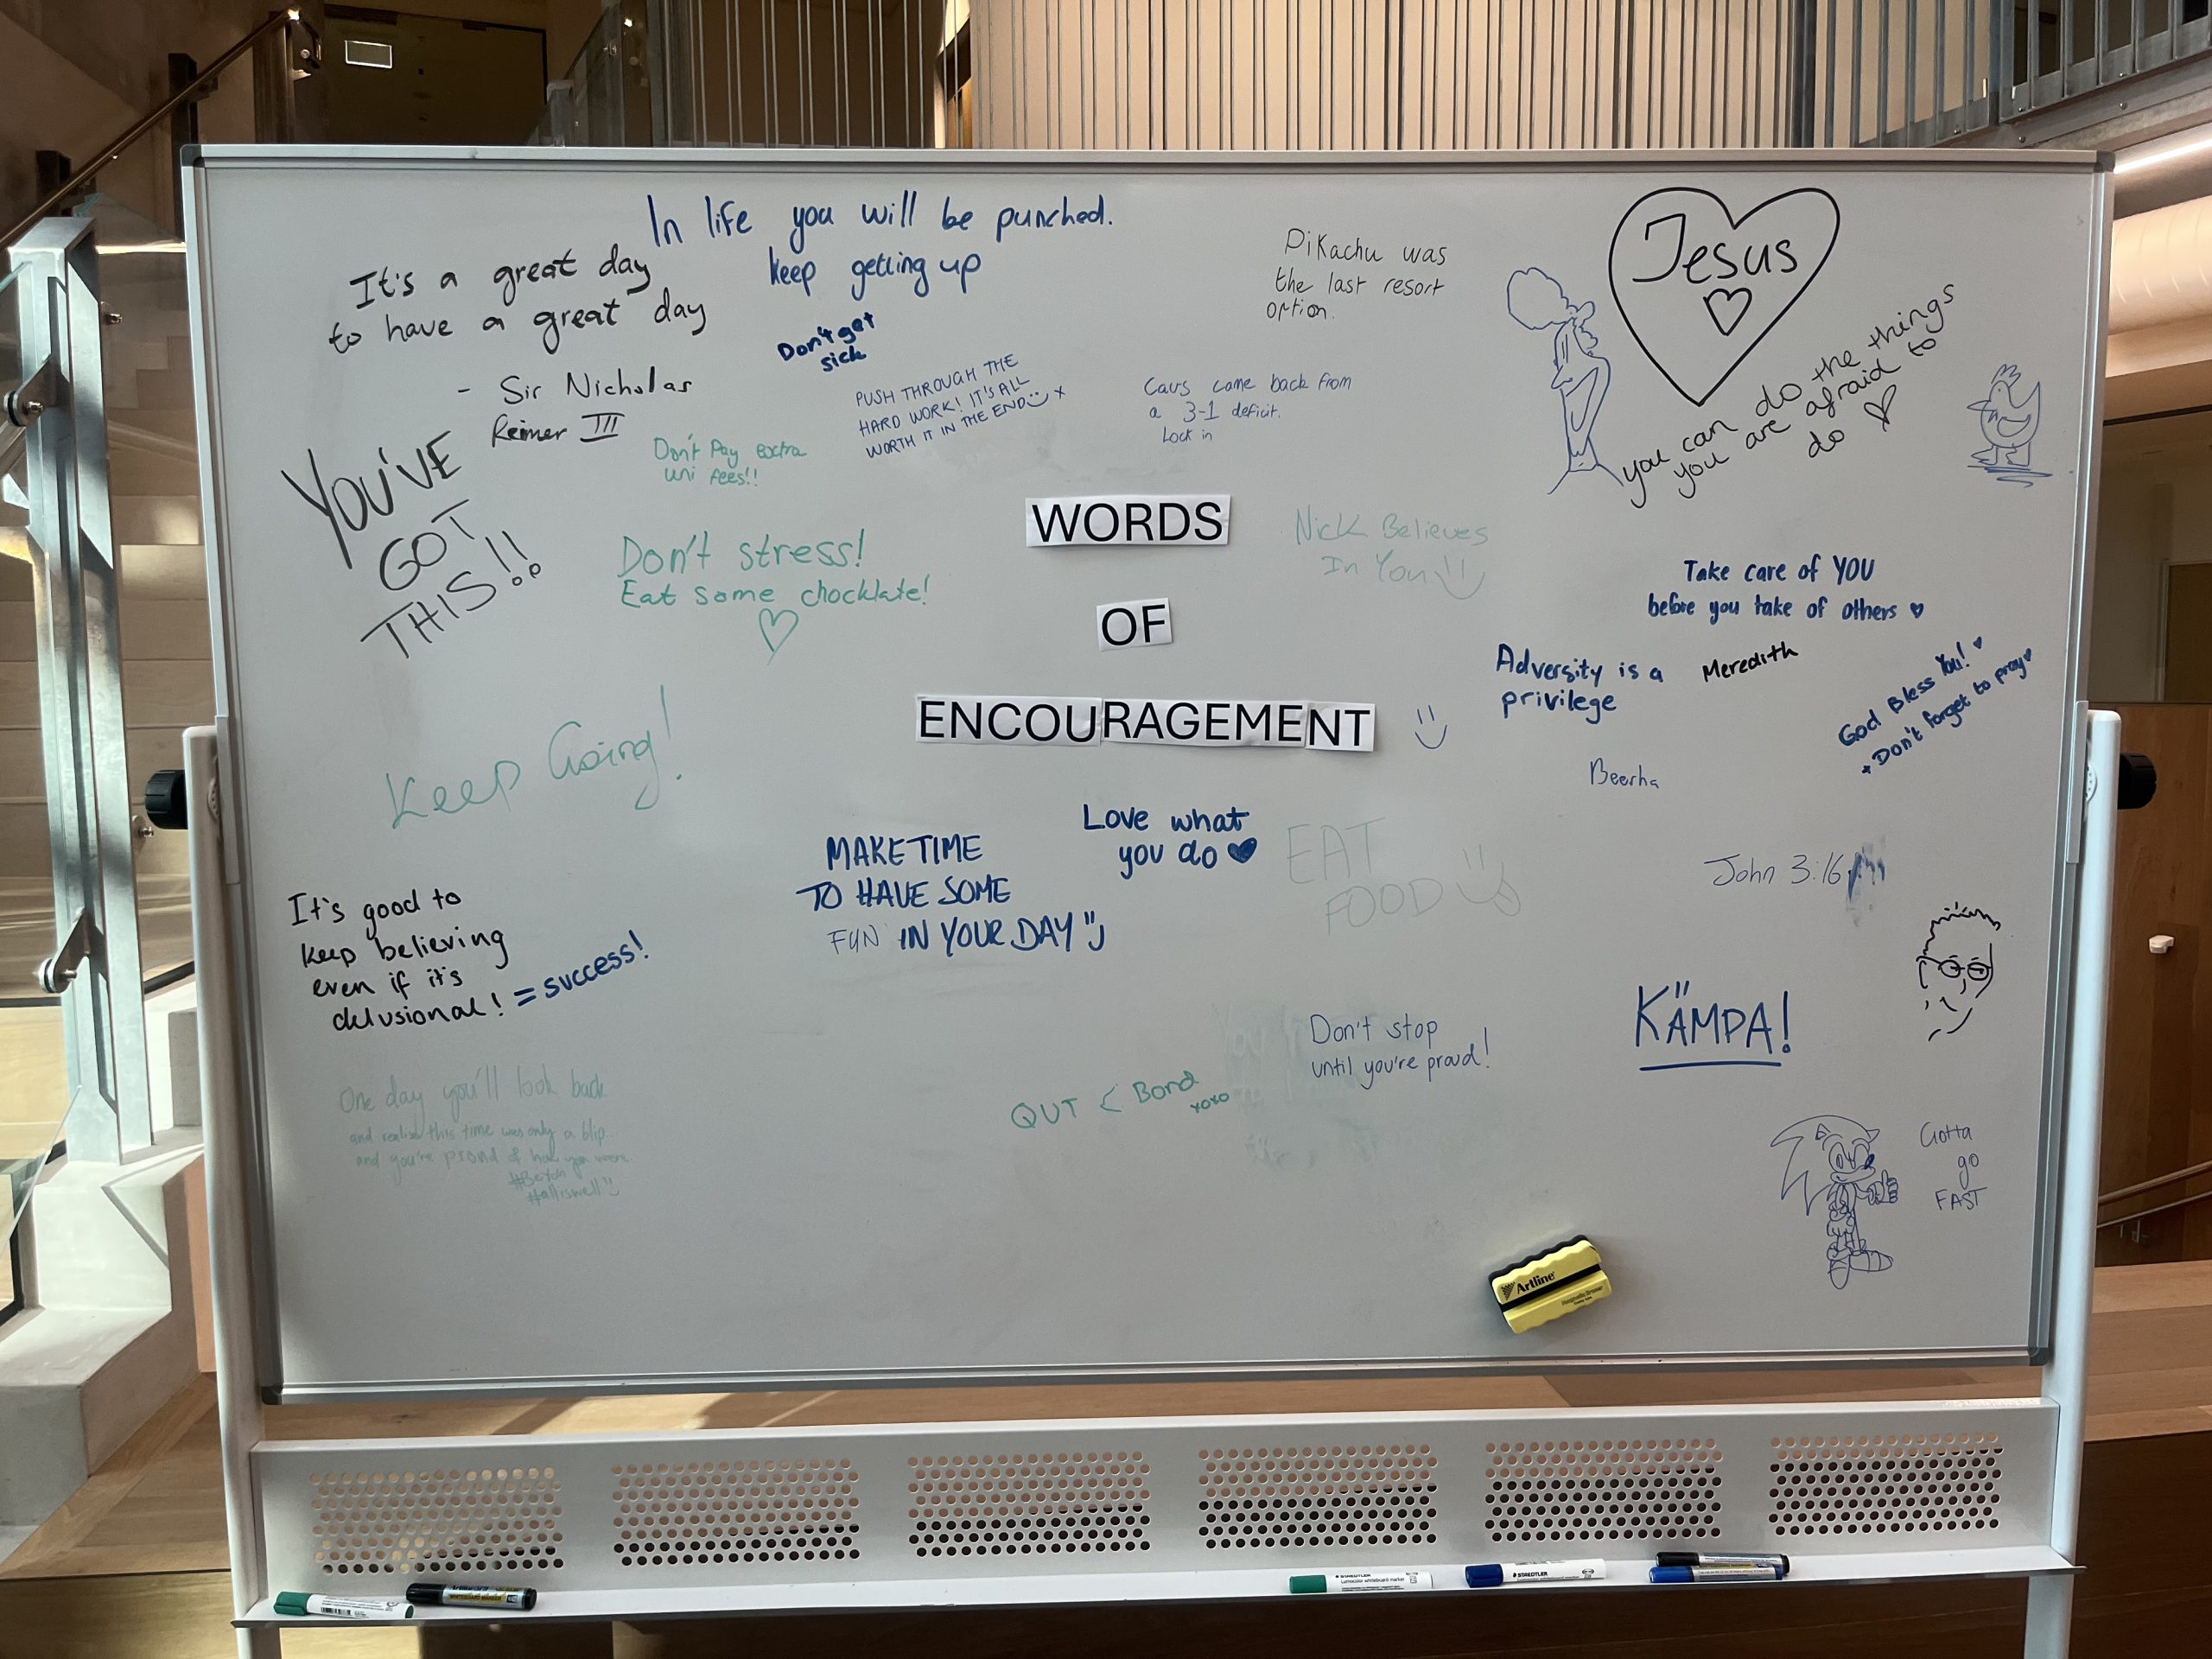 In life you will be punched.
keep getting up
It's a great day
to have a great day
- Sir Nicholas
Reimer III
Don't get
sick
PUSH THROUGH THE
HARD WORK! IT'S ALL
WORTH IT IN THE END x
Cavs came back from
a 3-1 deficit.
Lock in
Pikachu was
the last resort
option.
Jesus
you can do the things
you are afraid to
do
YOU'VE
GOT
THIS!!
Don't Pay extra
uni fees!!
Don't stress!
Eat some chocklate!
WORDS
OF
ENCOURAGEMENT
Nick Believes
In You
Take care of YOU
before you take of others
Adversity is a
privilege
Meredith
God Bless You!
+ Don't forget to pray
Beerha
Keep Going!
MAKE TIME
TO HAVE SOME
FUN IN YOUR DAY
Love what
you do
EAT
FOOD
John 3:16
It's good to
keep believing
even if it's
delusional! = success!
KÄMPA!
Don't stop
until you're proud!
QUT < Bond
xoxo
One day you'll look back
and realise this time was only a blip
and you're proud of how you were
#alliswell
Gotta
go
FAST
Artline
STAEDTLER
STAEDTLER